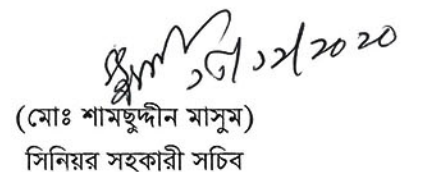 ১৩/১২/২০২০
(মোঃ শামছুদ্দীন মাসুম)
সিনিয়র সহকারী সচিব